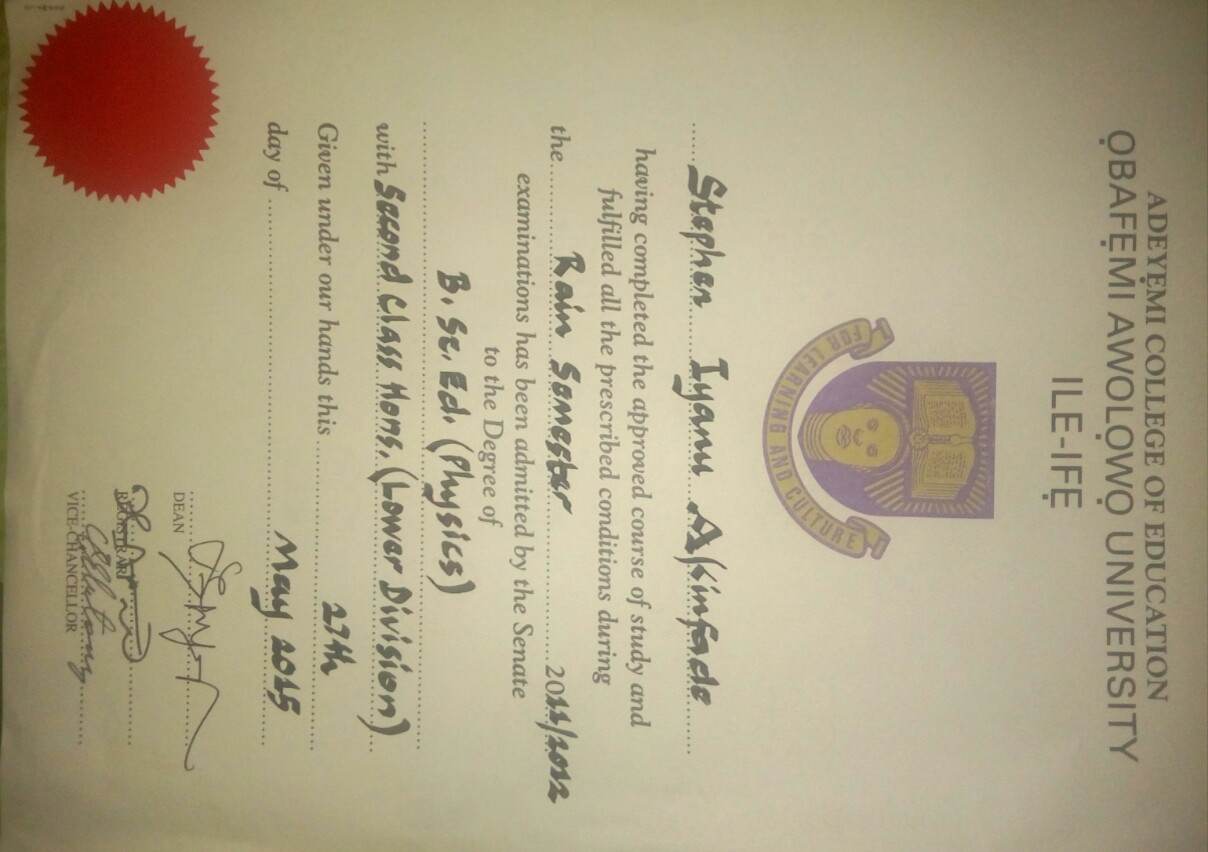 ADEYẸMI COLLEGE OF EDUCATION
ỌBAFẸMI AWOLỌWỌ UNIVERSITY
ILE-IFẸ
FOR LEARNING AND CULTURE
Stephen Iyanu Akinfade
having completed the approved course of study and
fulfilled all the prescribed conditions during
the Rain Semester 2011/2012
examinations has been admitted by the Senate
to the Degree of
B. Sc. Ed. (Physics)
with Second Class Hons. (Lower Division)
Given under our hands this 27th
day of May 2015
DEAN
REGISTRAR
VICE-CHANCELLOR